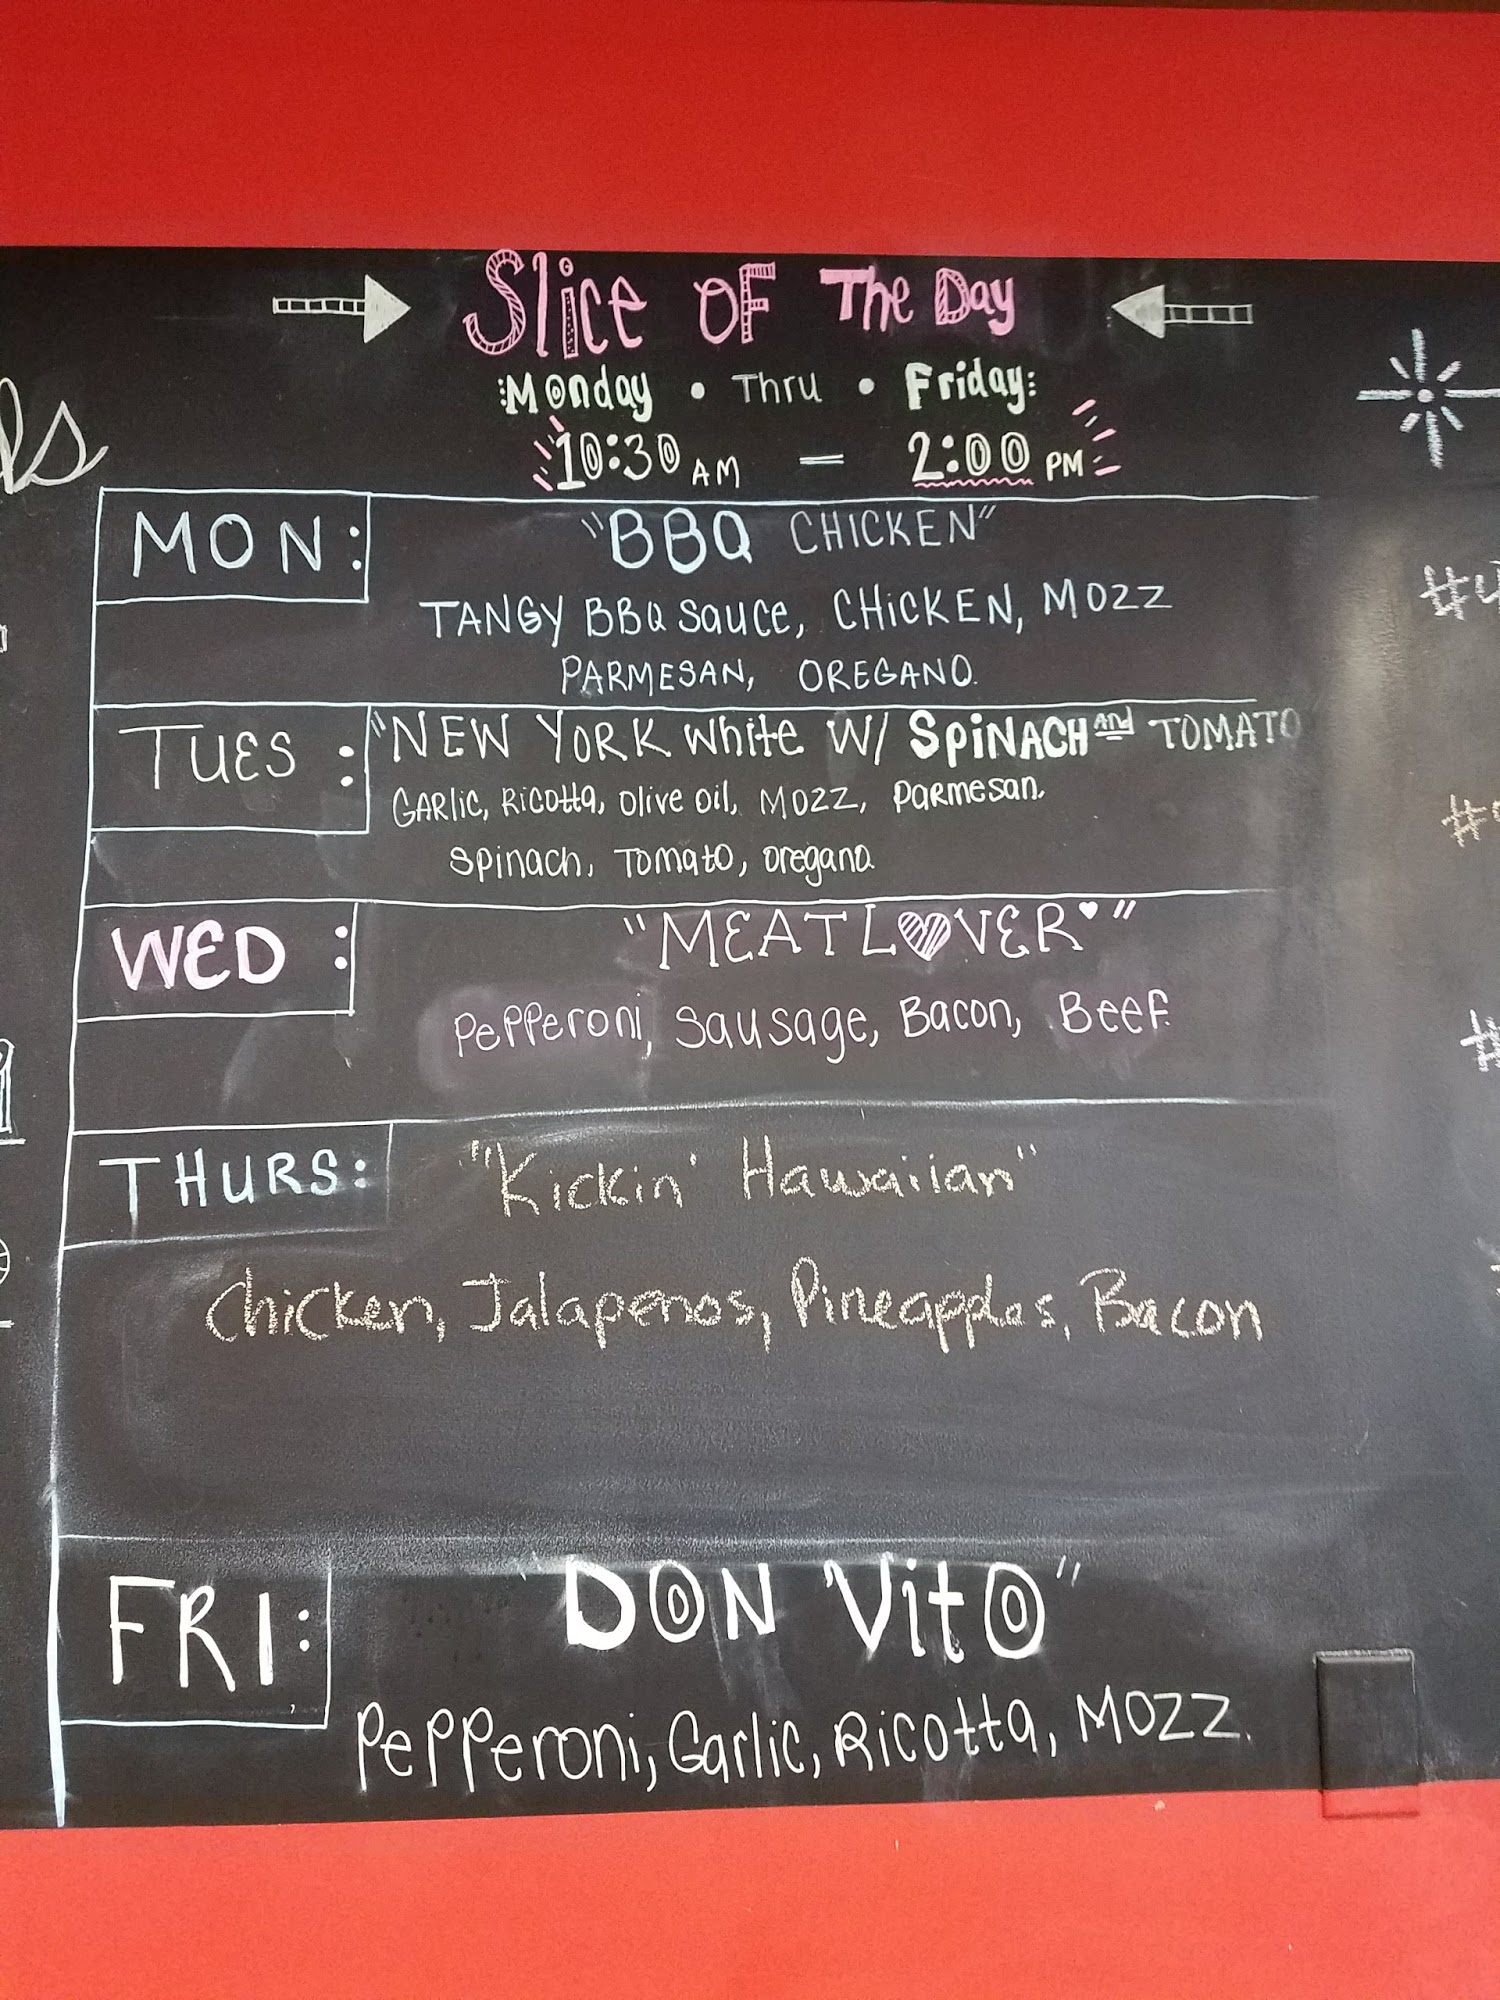 Slice OF The Day
Monday • Thru • Friday
10:30 AM — 2:00 PM
MON:
"BBQ CHICKEN"
TANGY BBQ Sauce, CHiCKEN, MOZZ
PARMESAN, OREGANO.
TUES :
"NEW YORK White W/ SPiNACH AND TOMATO
GARLic, RiCOtta, Olive Oil, MOZZ, PaRmesan.
Spinach, Tomato, oregano.
WED :
"MEAT LOVER"
PePPeroni, Sausage, Bacon, Beef.
THURS:
"Kickin' Hawaiian"
Chicken, Jalapenos, Pineapples, Bacon
FRI:
"DON VitO"
PePPeroni, Garlic, Ricotta, MOZZ.